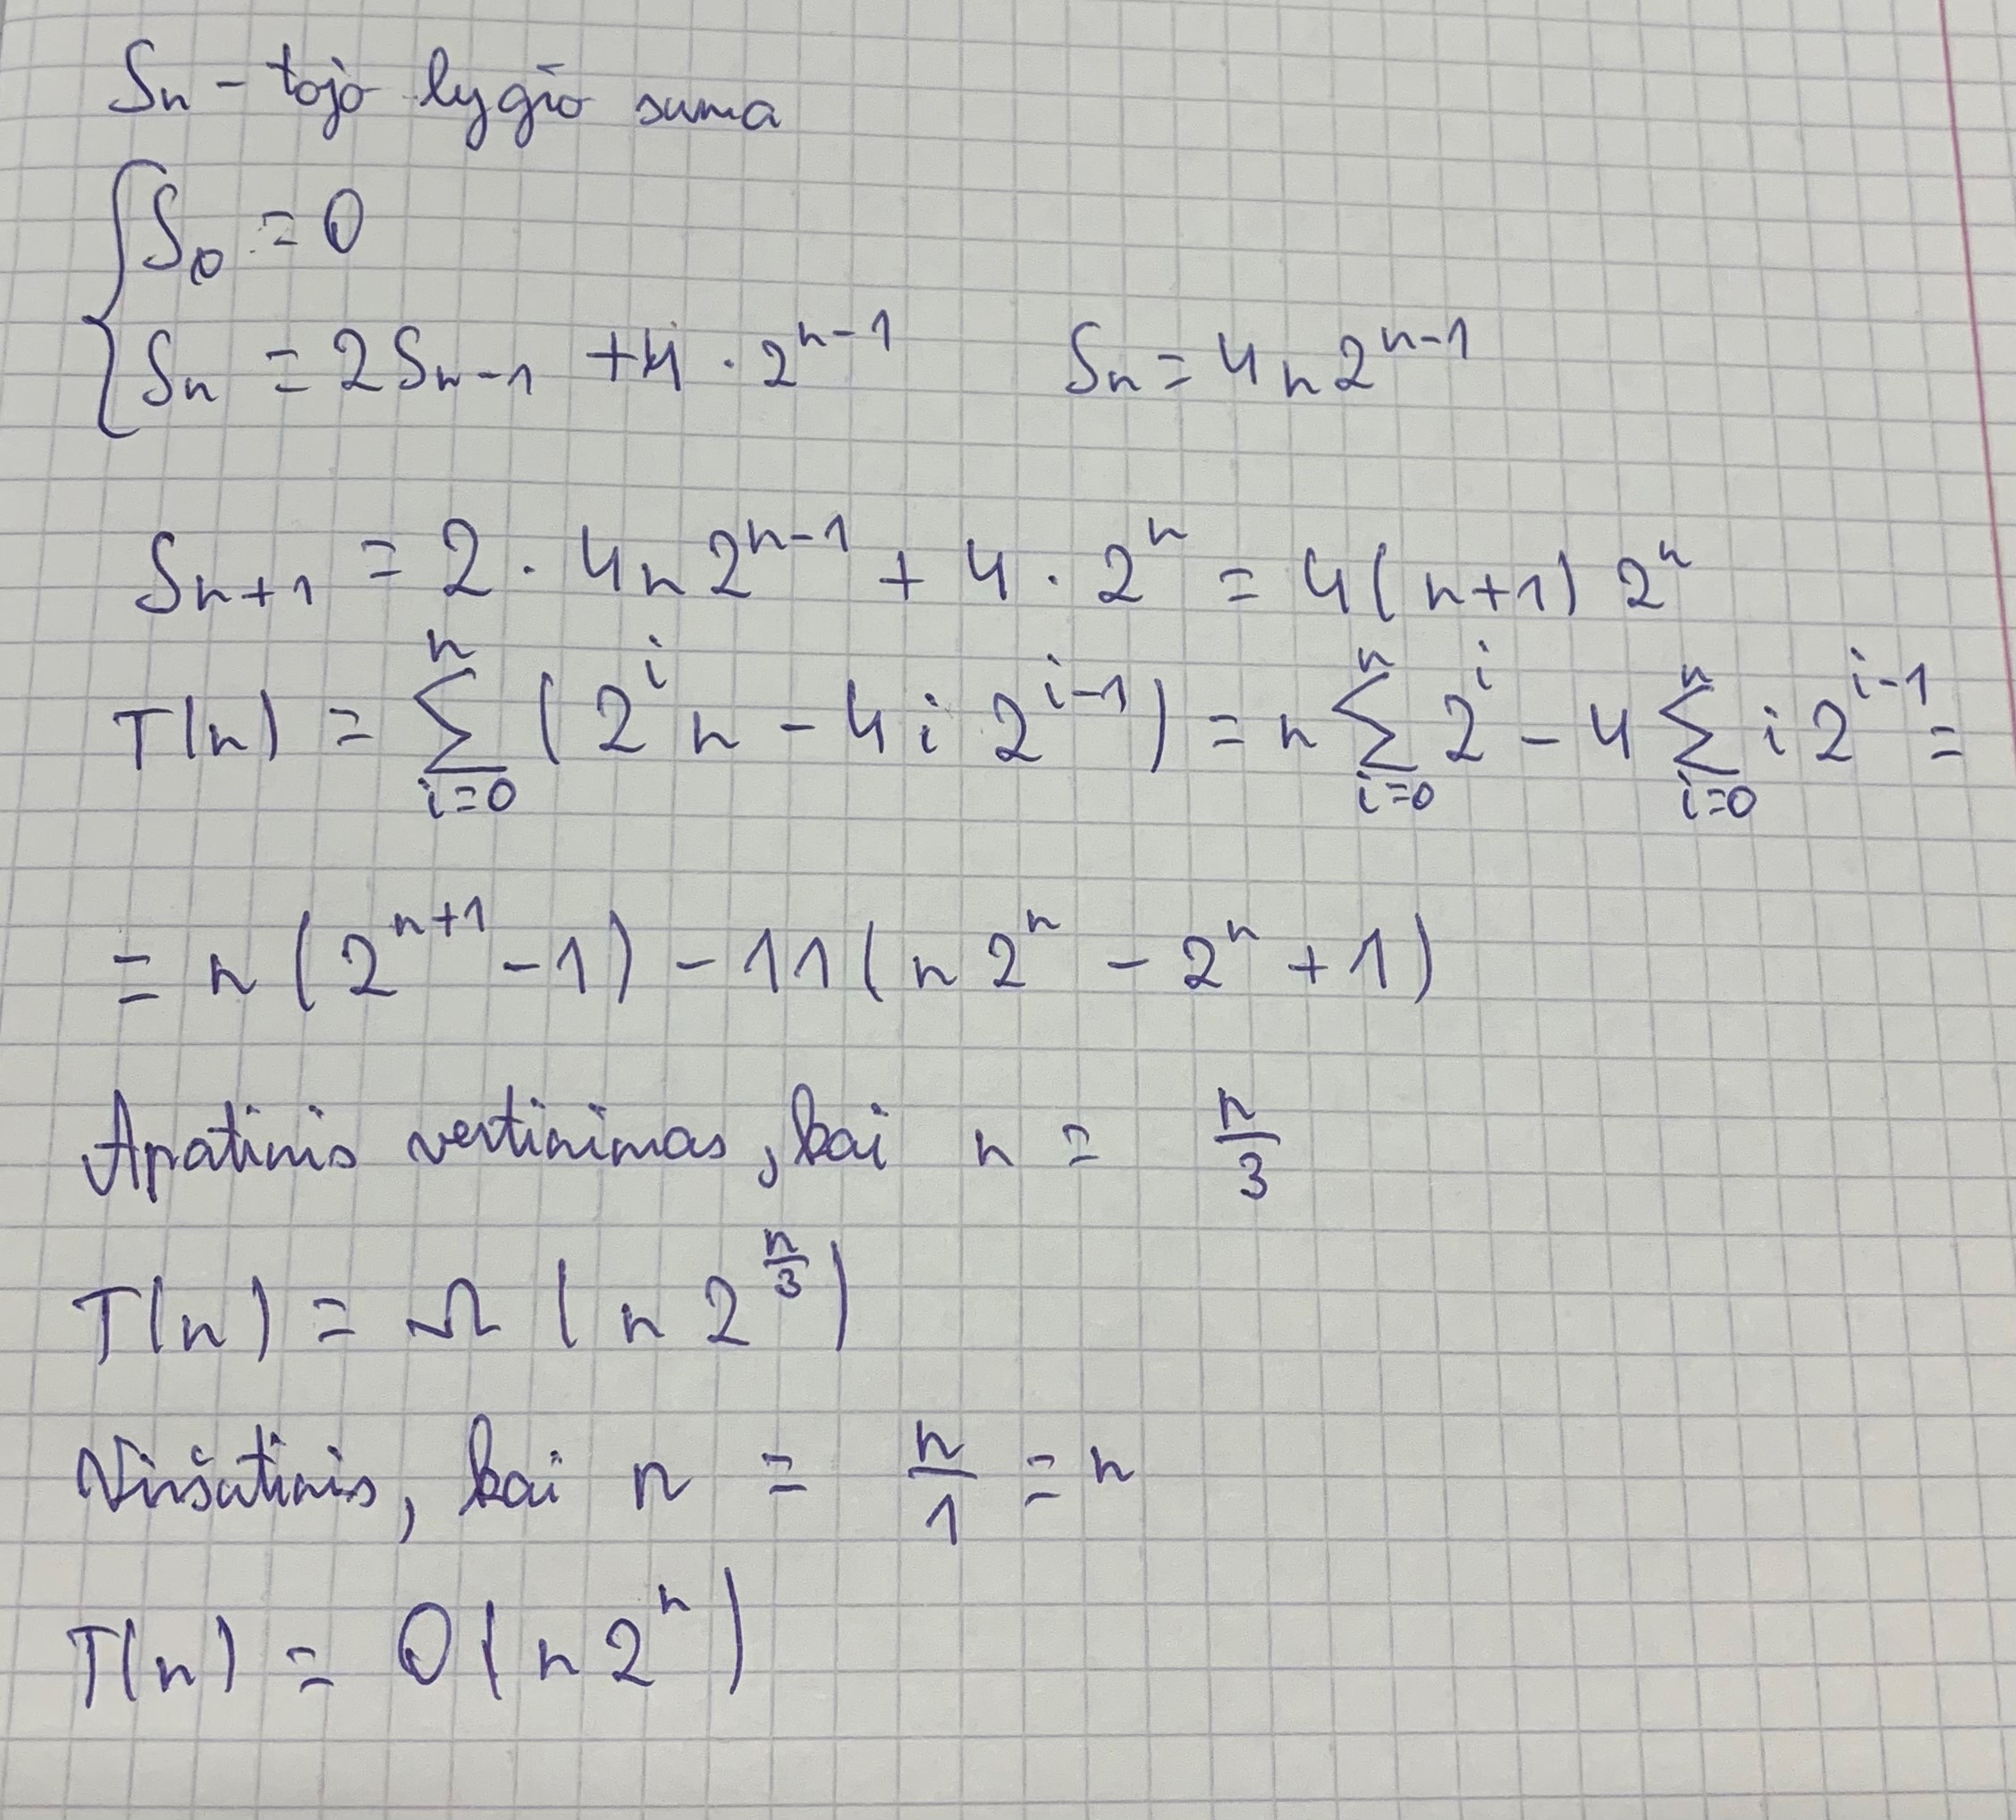 Sn - tojo lygio suma
S₀ = 0
Sₙ = 2Sₙ₋₁ + 4 · 2ⁿ⁻¹ Sₙ = 4n2ⁿ⁻¹
Sₙ₊₁ = 2 · 4n2ⁿ⁻¹ + 4 · 2ⁿ = 4(n+1) 2ⁿ
T(n) = ∑_{i=0}^{n} (2ⁱn - 4i 2ⁱ⁻¹) = n ∑_{i=0}^{n} 2ⁱ - 4 ∑_{i=0}^{n} i 2ⁱ⁻¹ =
= n (2ⁿ⁺¹ - 1) - 11(n2ⁿ - 2ⁿ + 1)
Apatinis vertinimas, kai n = n/3
T(n) = Ω (n 2^{n/3})
Viršutinis, kai n = n/1 = n
T(n) = O(n2ⁿ)